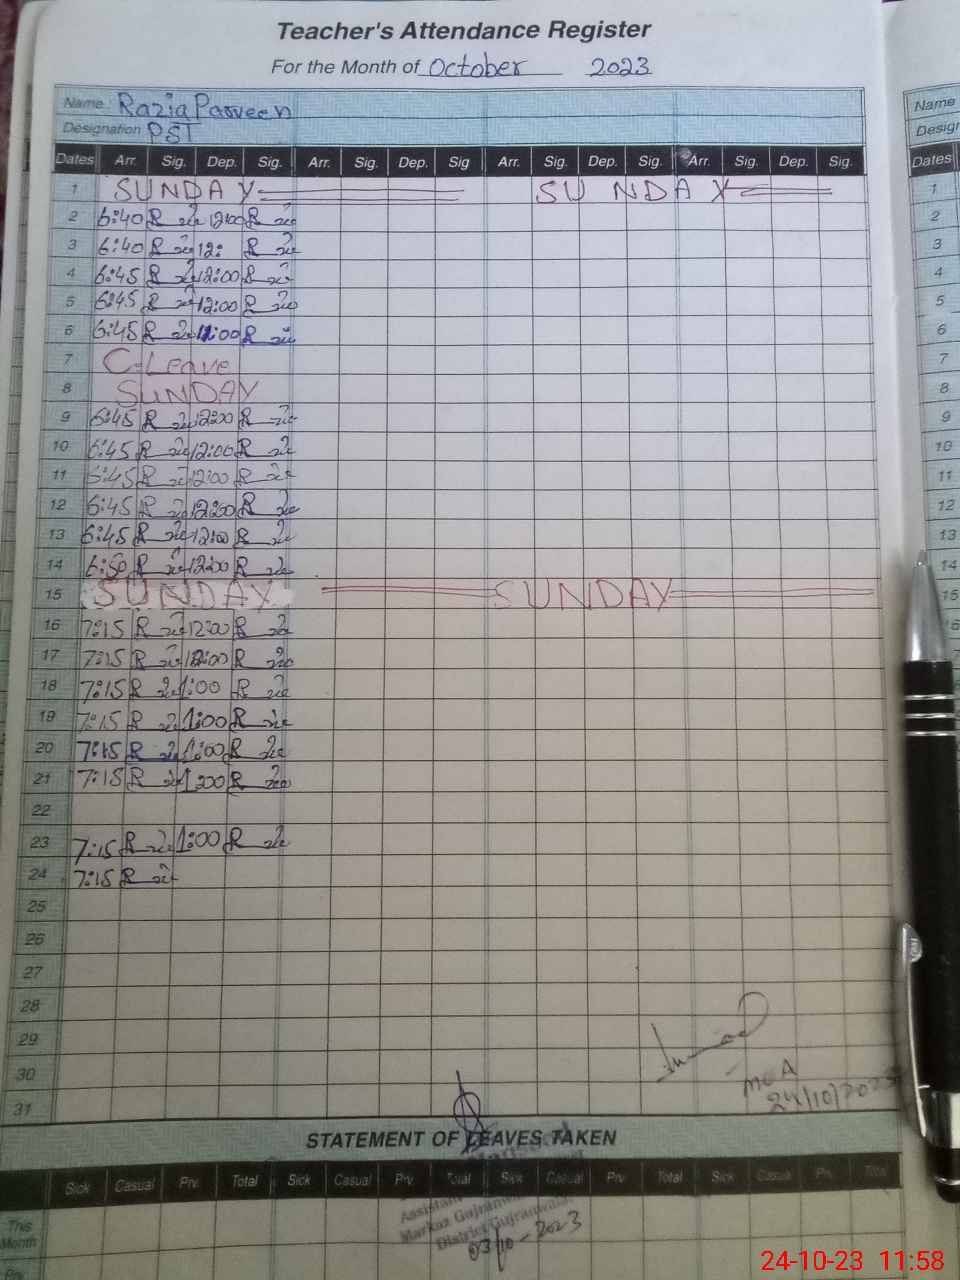 Teacher's Attendance Register
For the Month of October 2023
Name : Razia Parveen
Name
Designation PST
Dates Arr. Sig. Dep. Sig. Arr. Sig. Dep. Sig Arr. Sig. Dep. Sig. Arr. Sig. Dep. Sig.
Dates
1 SUNDAY SUNDAY
1
2 6:40 12:00
2
3 6:40 12:
3
4 6:45 12:00
4
5 6:45 12:00
5
6 6:45
6
7 C-Leave
7
8 SUNDAY
8
9 6:45 12:00
9
10 6:45 12:00
10
11 6:45 12:00
11
12 6:45 12:00
12
13 6:45 12:00
13
14 6:50 12:00
14
15 SUNDAY SUNDAY
15
16 7:15 12:00
16
17 7:15 12:00
17
18 7:15 1:00
18
19 7:15 1:00
19
20 7:15 1:00
20
21 7:15 1:00
21
22
23 7:15 1:00
24 7:15
25
26
27
28
29
30
31
MEA
24/10/2023
STATEMENT OF LEAVES TAKEN
Sick Casual Prv. Total Sick Casual Prv. Total Sick Casual Prv. Total Sick Casual Prv. Total
This
Month
Assistant
Markaz Gujranwala
District Gujranwala
03/10-2023
24-10-23 11:58